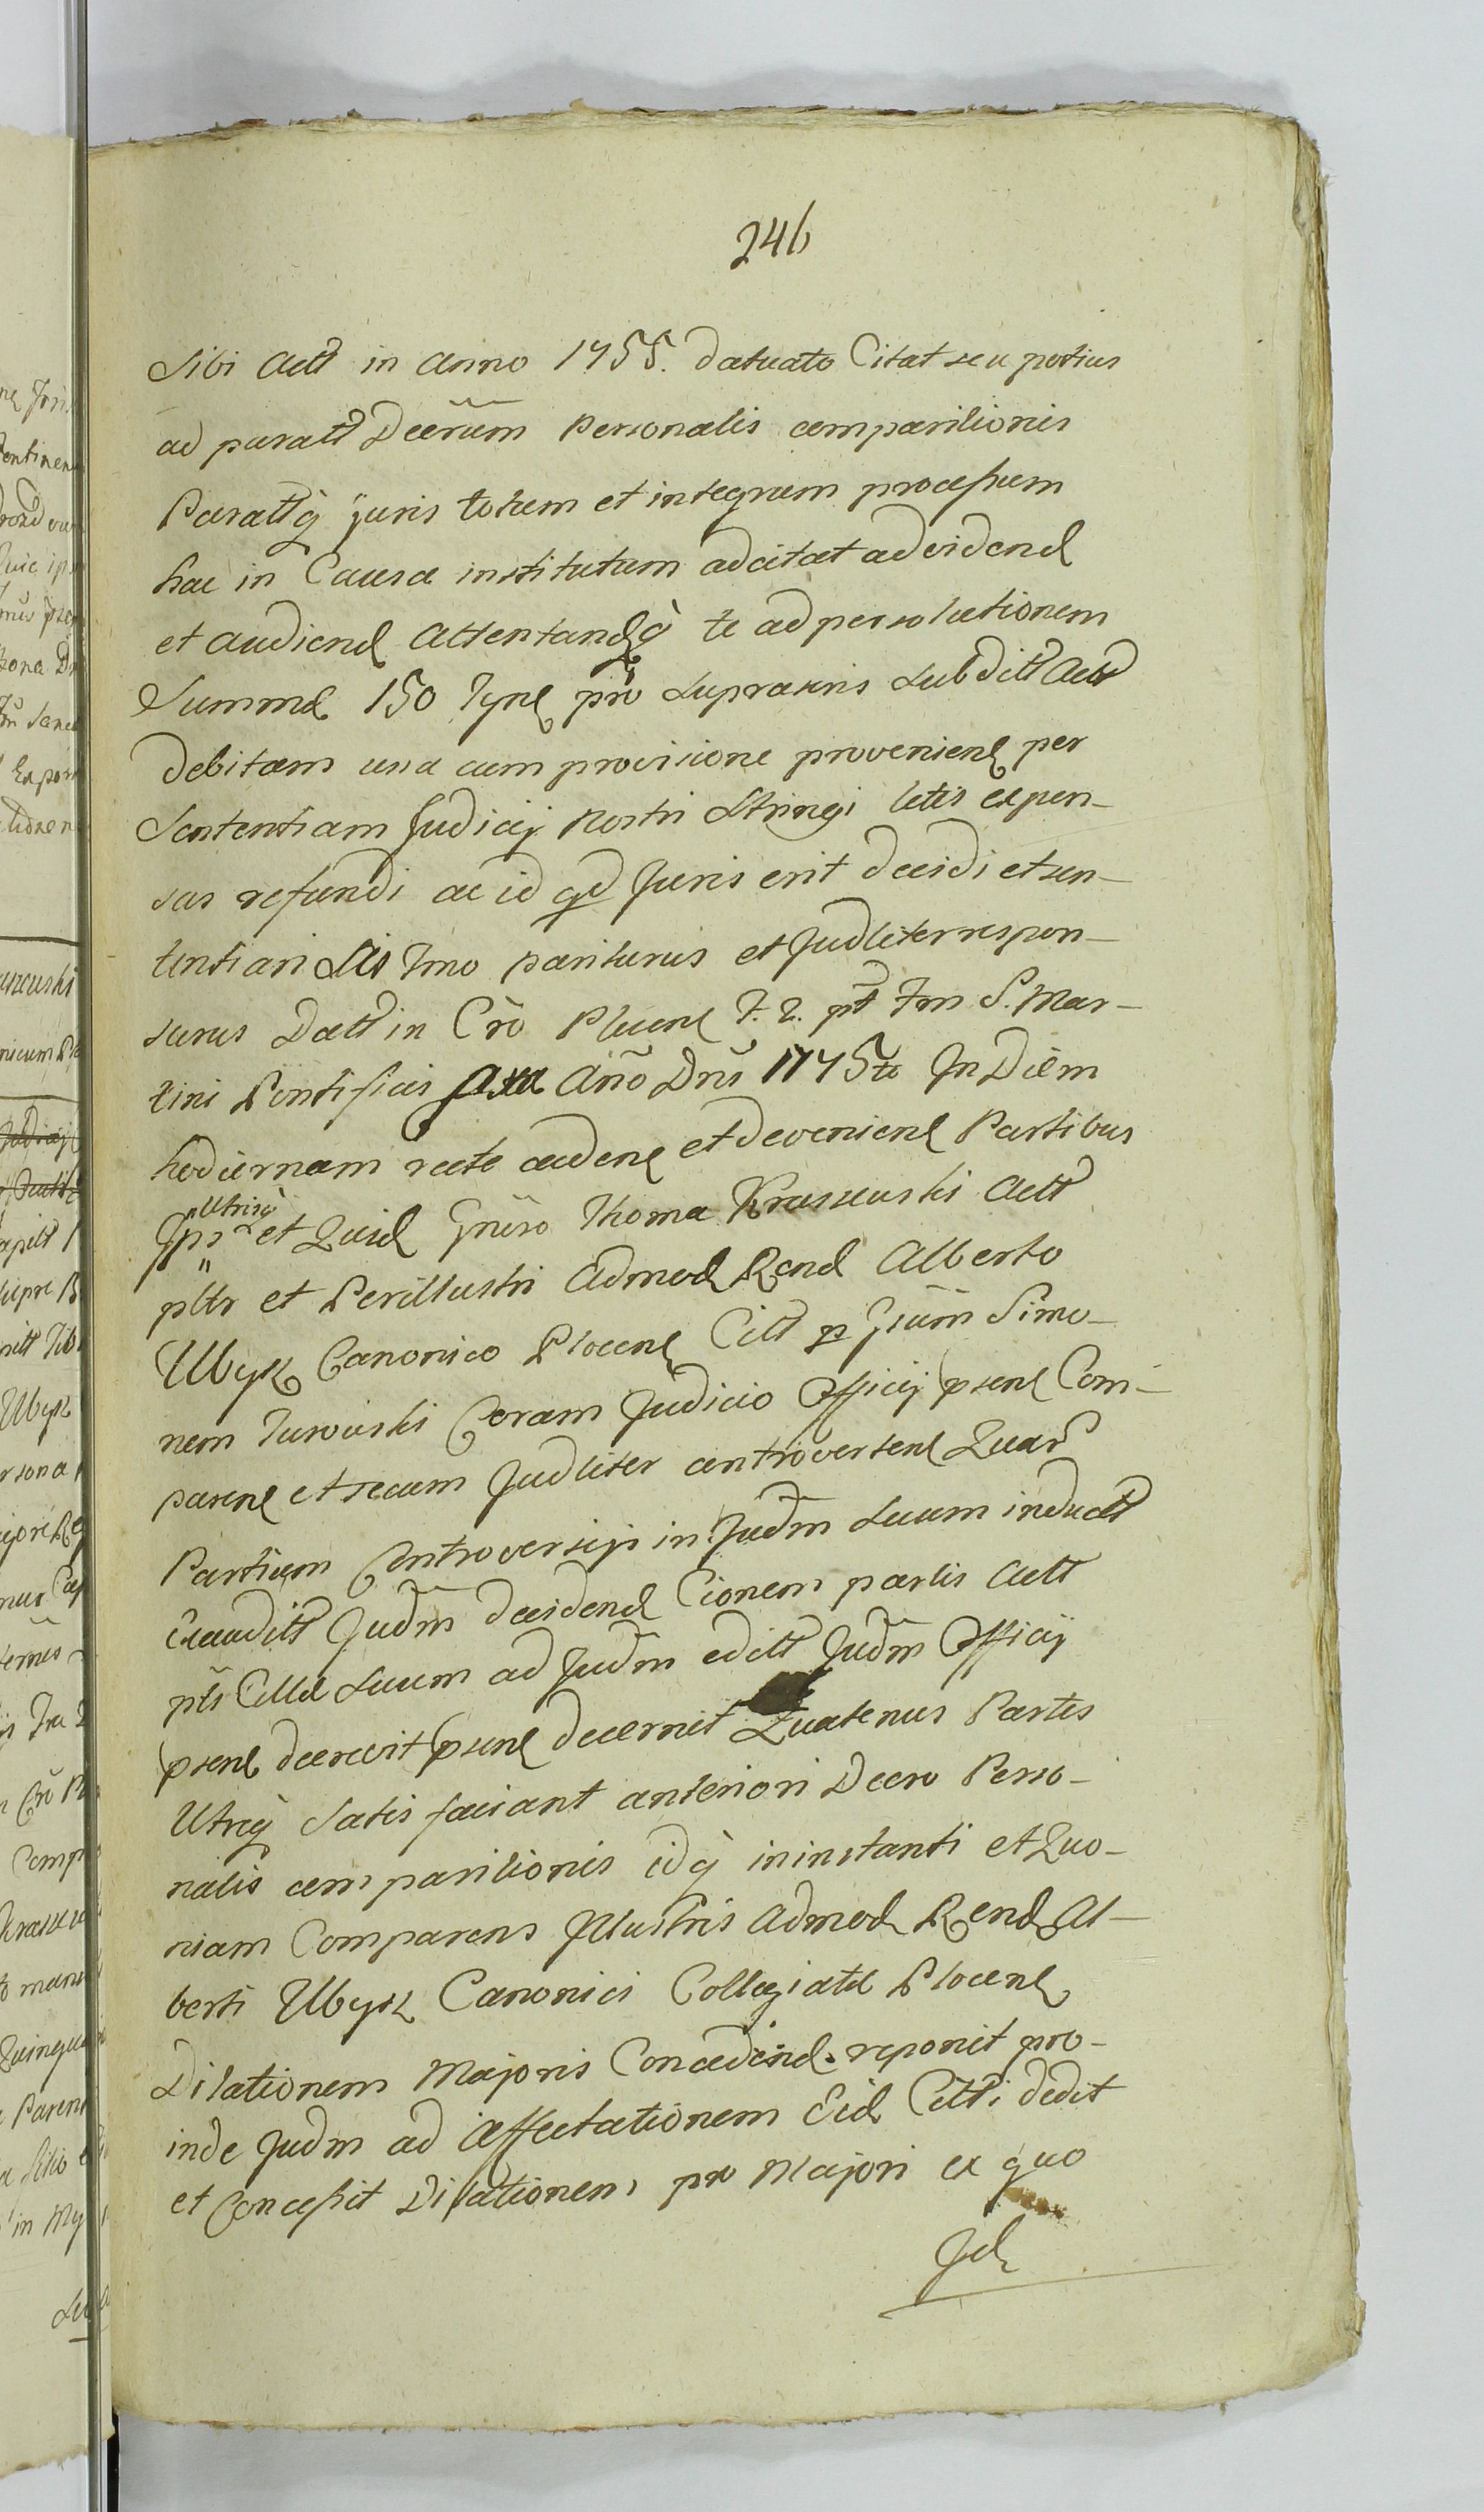 246
Sibi Actt in Anno 1755. datuato Citat seu potius
ad paratt Decrum Personalis comparitionis
Parattq juris totum et integrum processum
hac in Causa institutum adcitat ad videnđ
et audienđ Attentandq te ad persolutionem
Summæ 150 Tynf pro supra suis subditt Actt
debitam una cum provisione provenienț per
Sententiam Judicij Nostri Stringi litis expen-
sas refundi ac id qd Juris erit decidi et sen-
tentiari Sis Tmo pariturus et Judliter respon-
surus Datt in Cro Plocens F. 2. pt Fm S. Mar-
tini Pontificis Año Dni 1775to In Diem
hodiernam recte cadens et deveniens Partibus
Ipsis utrisq et Quid Gnroso Thoma Krassewski Actt
pltr et Perillustri Admod Rend Alberto
Ubysz Canonico Plocens Citt p Gsum Simo-
nem Turowski Coram Judicio Officij psens Com-
parens et secum Judliter controvertens Quar
Partium Controversijs in Judm suum induct
Exauditt Judm decidend Cionem partis Actt
pts Cittæ suum ad Judm editt Judm Officij
psens decrevit psens decernit Quatenus Partes
Utreq satis faciant anteriori Decro Perso-
nalis comparitionis idq in instanti et Quo-
niam Comparens Illustris Admod Rend Al-
berti Ubysz Canonici Collegiatæ Plocens
Dilationem Majoris Concedend reponit pro-
inde Judm ad affectationem Eid Citti dedit
et Concessit Dilationem pro Majori ex quo
Id